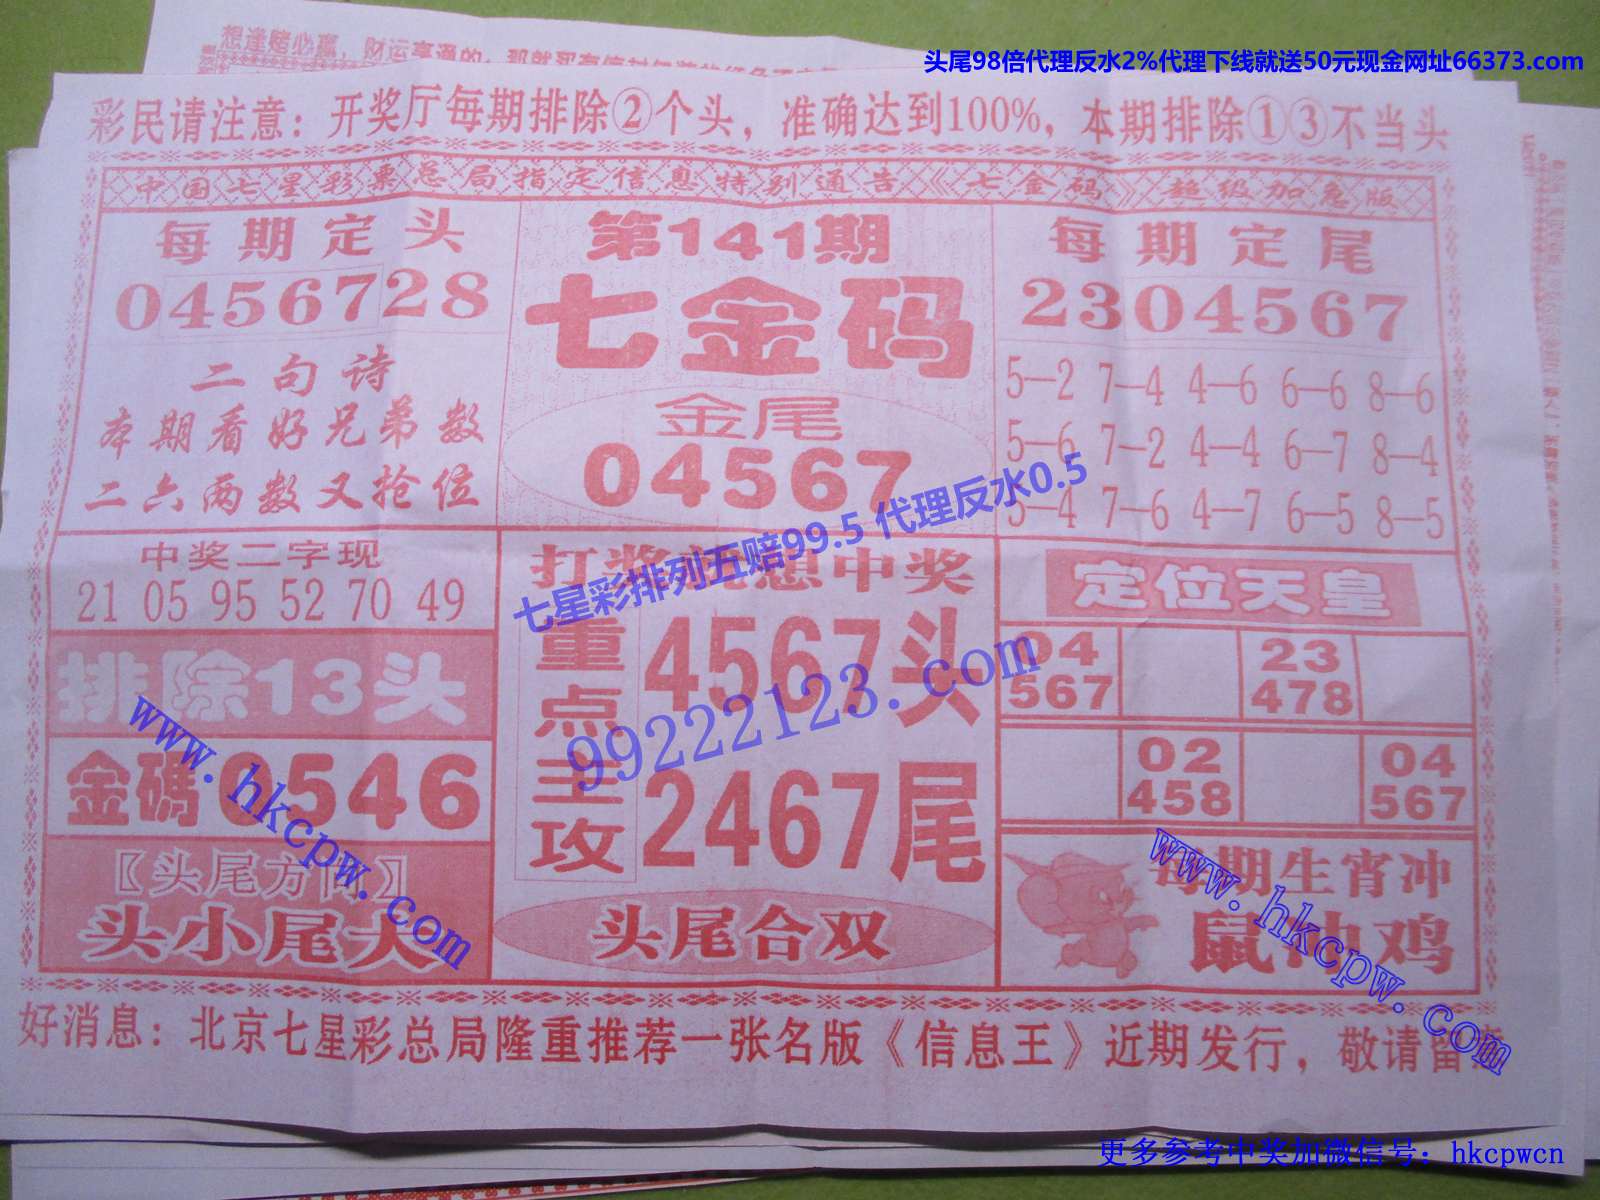 想逢赌必赢，财运亨通的，那就
头尾98倍代理反水2%代理下线就送50元现金网址66373.com
彩民请注意：开奖厅每期排除②个头，准确达到100%，本期排除①③不当头
中国七星彩票总局指定信息特别通告《七金码》超级加急版
每期定头
0456728
二句诗
本期看好兄弟数
二六两数又抢位
第141期
七金码
金尾
04567
每期定尾
2304567
5—2 7—4 4—6 6—6 8—6
5—6 7—2 4—4 6—7 8—4
5—4 7—6 4—7 6—5 8—5
七星彩排列五赔99.5 代理反水0.5
中奖二字现
21 05 95 52 70 49
排除13头
金碼0546
〖头尾方向〗
头小尾大
打奖 想中奖
重点主攻
4567头
2467尾
头尾合双
99222123.com
定位天皇
04 23
567 478
02 04
458 567
每期生肖冲
鼠冲鸡
www.hkcpw.com
www.hkcpw.com
好消息：北京七星彩总局隆重推荐一张名版《信息王》近期发行，敬请留意
更多参考中奖加微信号：hkcpwcn